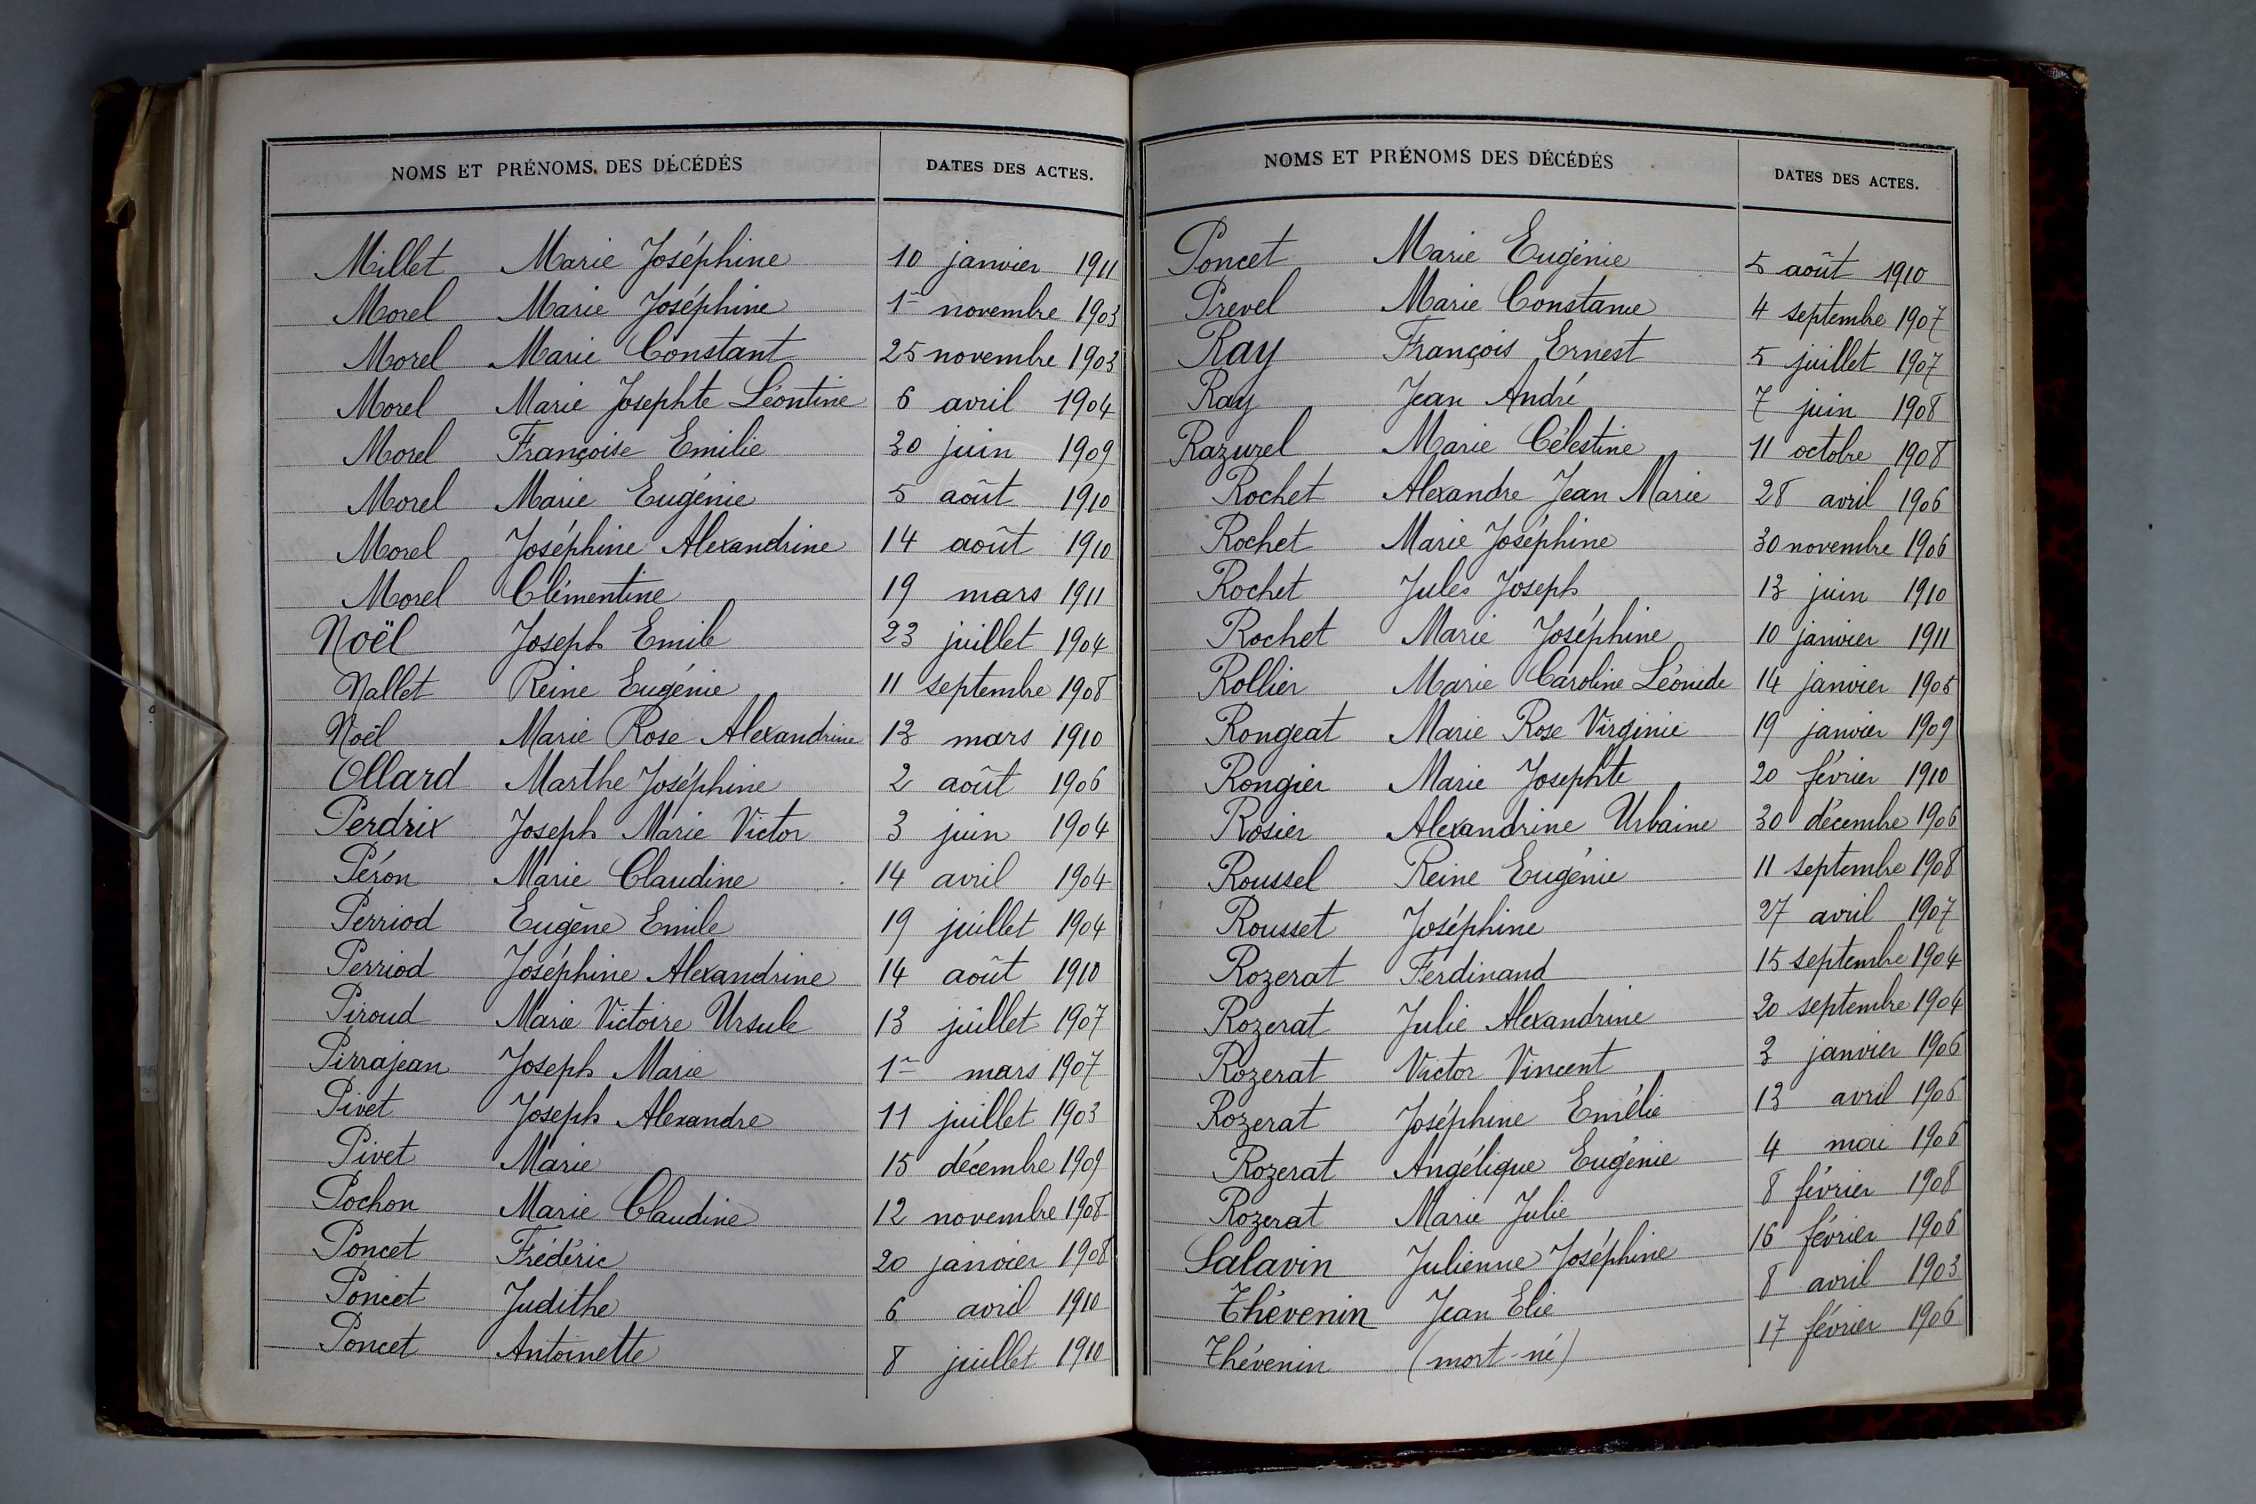 NOMS ET PRÉNOMS DES DÉCÉDÉS DATES DES ACTES.
Millet Marie Joséphine 10 janvier 1911
Morel Marie Joséphine 1er novembre 1903
Morel Marie Constant 25 novembre 1903
Morel Marie Josephte Léontine 6 avril 1904
Morel Françoise Emilie 30 juin 1909
Morel Marie Eugénie 5 août 1910
Morel Joséphine Alexandrine 14 août 1910
Morel Clémentine 19 mars 1911
Noël Joseph Emile 23 juillet 1904
Nallet Reine Eugénie 11 septembre 1908
Noël Marie Rose Alexandrine 13 mars 1910
Ollard Marthe Joséphine 2 août 1906
Perdrix Joseph Marie Victor 3 juin 1904
Péron Marie Claudine 14 avril 1904
Perriod Eugène Emile 19 juillet 1904
Perriod Joséphine Alexandrine 14 août 1910
Piroud Marie Victoire Ursule 13 juillet 1907
Pirrajean Joseph Marie 1er mars 1907
Pivet Joseph Alexandre 11 juillet 1903
Pivet Marie 15 décembre 1909
Pochon Marie Claudine 12 novembre 1908
Poncet Frédéric 20 janvier 1908
Poncet Judithe 6 avril 1910
Poncet Antoinette 8 juillet 1910
NOMS ET PRÉNOMS DES DÉCÉDÉS DATES DES ACTES.
Poncet Marie Eugénie 5 août 1910
Prevel Marie Constance 4 septembre 1907
Ray François Ernest 5 juillet 1907
Ray Jean André 7 juin 1908
Razurel Marie Célestine 11 octobre 1908
Rochet Alexandre Jean Marie 28 avril 1906
Rochet Marie Joséphine 30 novembre 1906
Rochet Jules Joseph 13 juin 1910
Rochet Marie Joséphine 10 janvier 1911
Rollier Marie Caroline Léonide 14 janvier 1905
Rongeat Marie Rose Virginie 19 janvier 1909
Rongier Marie Josephte 20 février 1910
Rosier Alexandrine Urbaine 30 décembre 1906
Roussel Reine Eugénie 11 septembre 1908
Rousset Joséphine 27 avril 1907
Rozerat Ferdinand 15 septembre 1904
Rozerat Julie Alexandrine 20 septembre 1904
Rozerat Victor Vincent 3 janvier 1906
Rozerat Joséphine Emélie 13 avril 1906
Rozerat Angélique Eugénie 4 mai 1906
Rozerat Marie Julie 8 février 1908
Salavin Julienne Joséphine 16 février 1906
Thévenin Jean Elie 8 avril 1903
Thévenin (mort-né) 17 février 1906